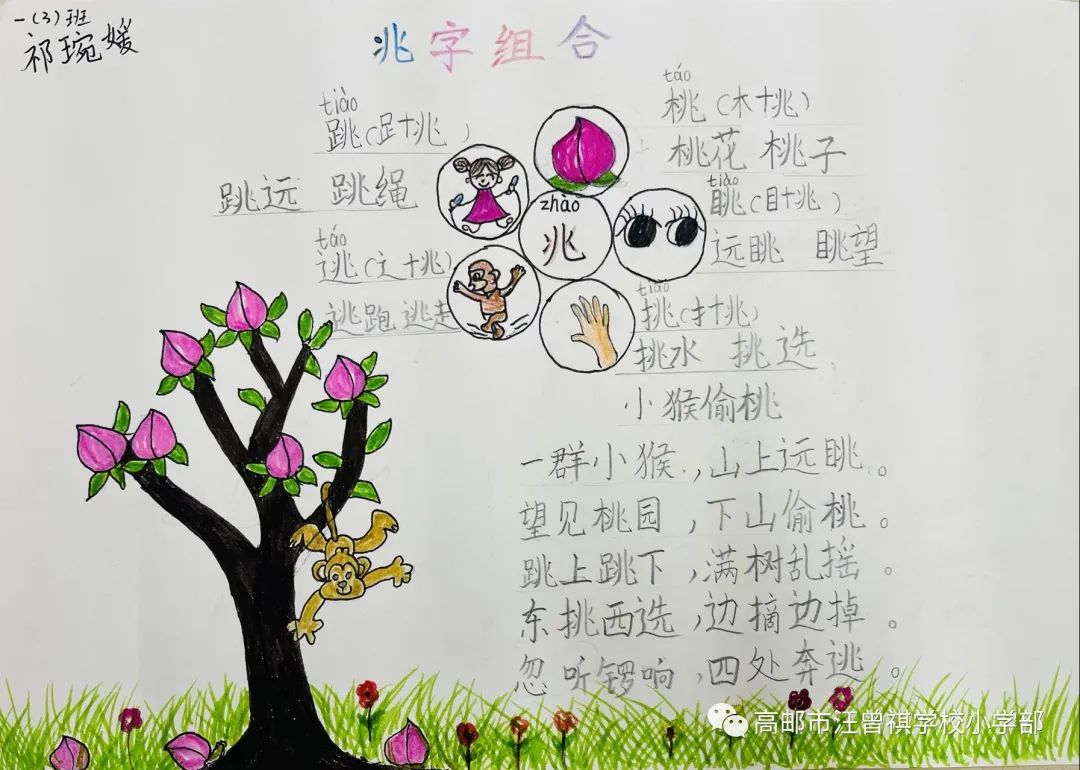 一(3)班
祁琬媛
兆字组合
tiào
跳(𧾷+兆)
跳远 跳绳
táo
逃(辶+兆)
逃跑 逃走
zhào
兆
táo
桃(木+兆)
桃花 桃子
tiào
眺(目+兆)
远眺 眺望
tiāo
挑(扌+兆)
挑水 挑选
小猴偷桃
一群小猴,山上远眺。
望见桃园,下山偷桃。
跳上跳下,满树乱摇。
东挑西选,边摘边掉。
忽听锣响,四处奔逃。
高邮市汪曾祺学校小学部